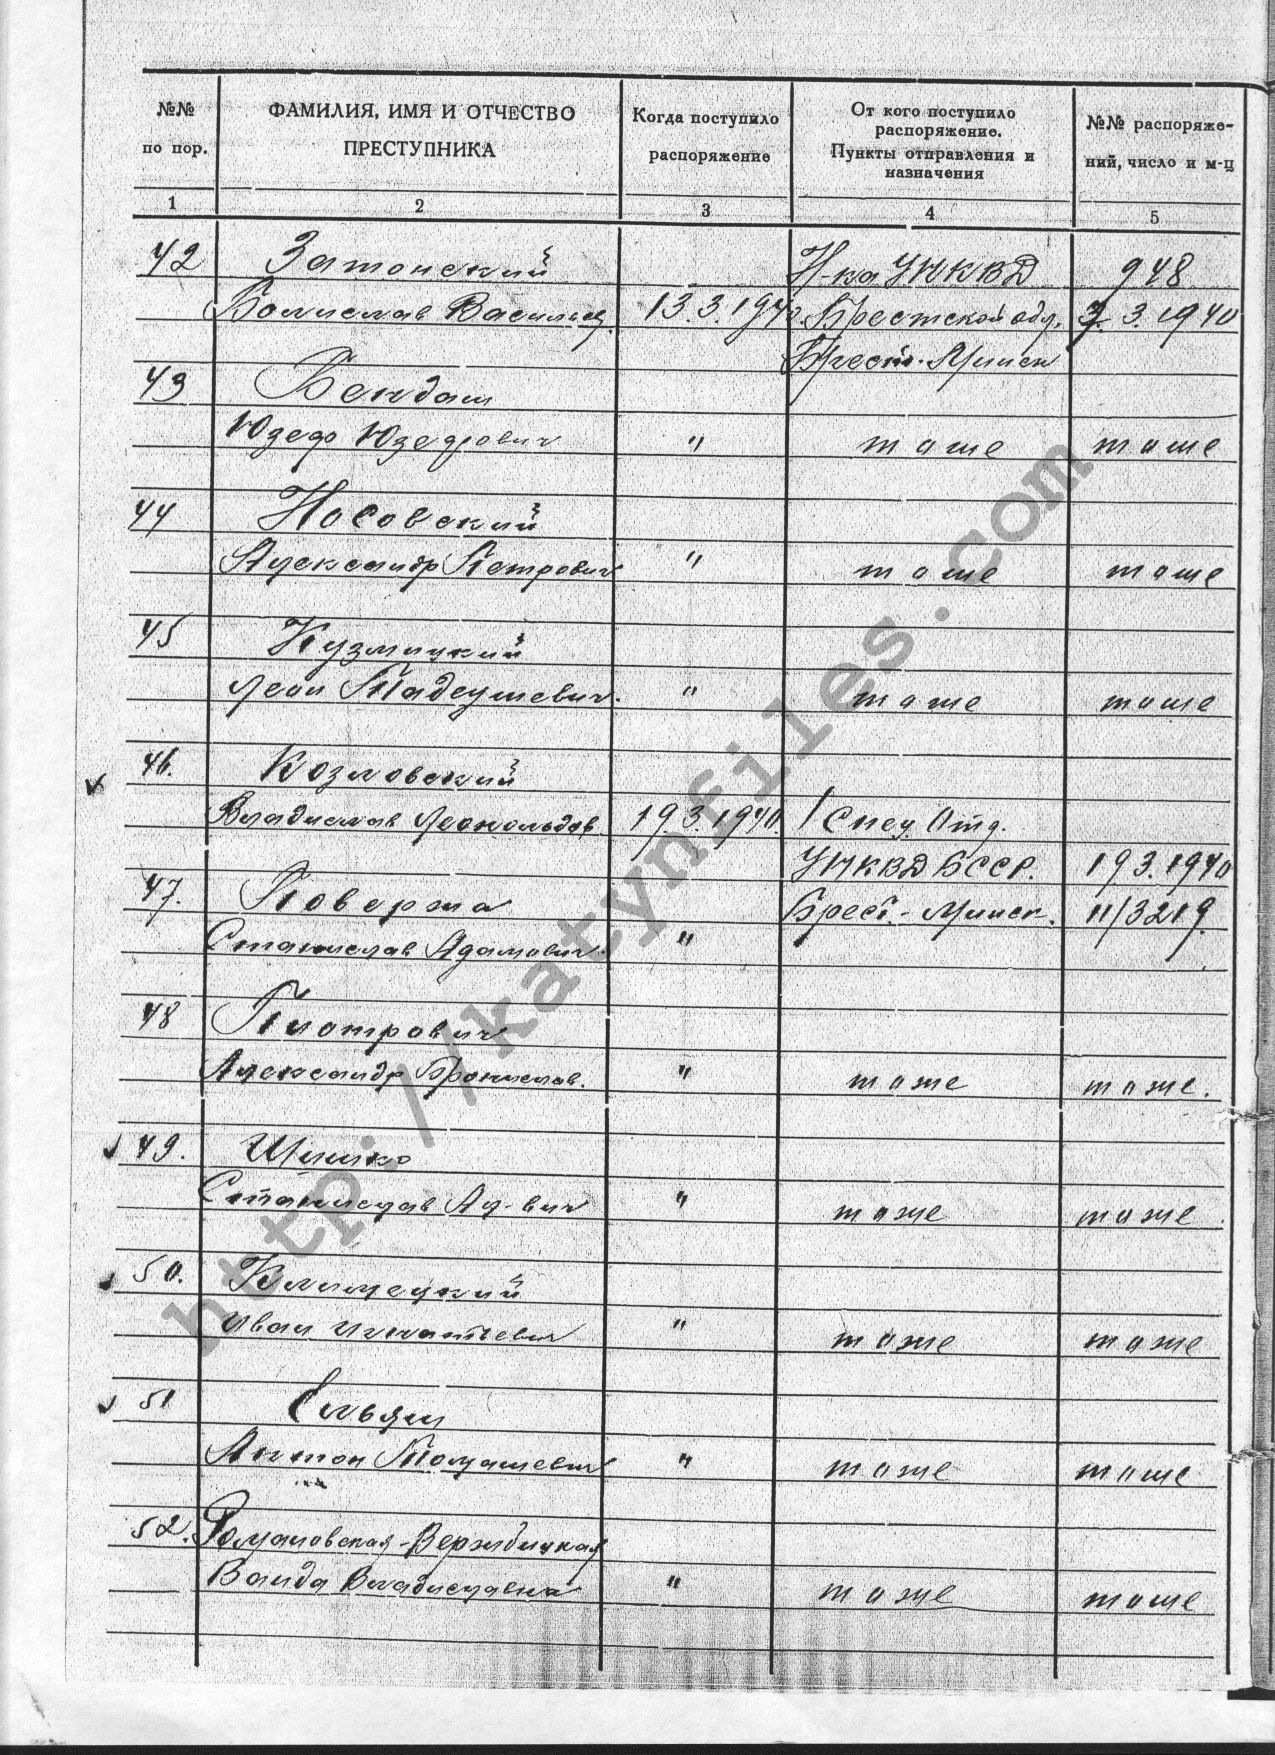 №№ ФАМИЛИЯ, ИМЯ И ОТЧЕСТВО Когда поступило От кого поступило №№ распоряже-
по пор. ПРЕСТУПНИКА распоряжение распоряжение. ний, число и м-ц
Пункты отправления и
назначения
1 2 3 4 5
42 Затонский Н-ка УНКВД 948
Болислав Васильев. 13.3.1940. Брестской обл. 7. 3. 1940
Брест. Минск
43 Бендаш
Юзеф Юзефович " тоже тоже
44 Носовский
Александр Петрович " тоже тоже
45 Кузмицкий
Леон Тадеушевич. " тоже тоже
46. Козловский
Владислав Леопольдов. 19.3.1940. 1 Спец. Отд.
УНКВД БССР. 19 3. 1940
47. Повержа Брест. - Минск. 11/3219.
Станислав Адамович. "
48 Пиотрович
Александр Бронислав. " тоже тоже.
49. Шишко
Станислав Ад-вич " тоже тоже
50. Климецкий
Иван Игнатьевич " тоже тоже
51 Сивьян
Антон Томашевич " тоже тоже
52. Романовская-Вержбицкая
Ванда Владиславна " тоже тоже
http://katynfiles.com